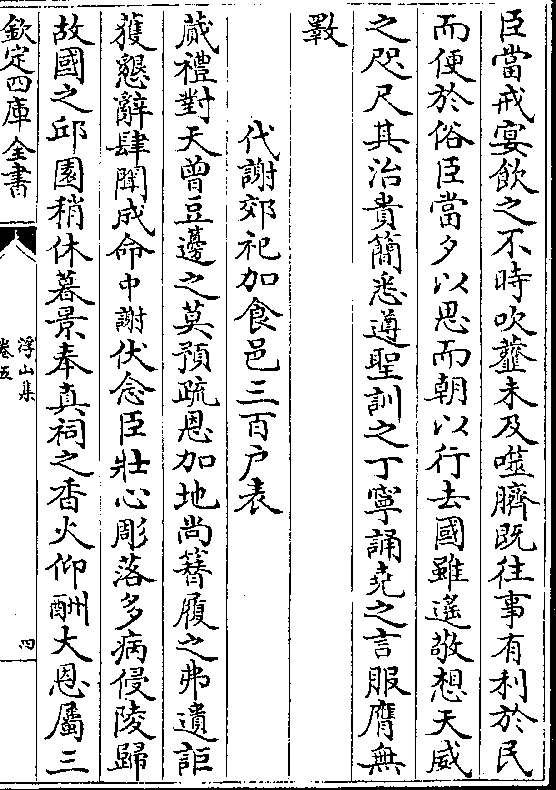 臣當戒宴飲之不時吹虀未及噬臍既往事有利於民
而便於俗臣當夕以思而朝以行去國雖遙敬想天威
之咫尺其治貴簡悉遵聖訓之丁寧誦堯之言服膺無
斁
代謝郊祀加食邑三百户表
蕆禮對天曾豆籩之莫預疏恩加地尚簪履之弗遺詎
獲懇辭肆聞成命中謝伏念臣壯心彫落多病侵陵歸
故國之邱園稍休暮景奉真祠之香火仰酬大恩屬三
欽定四庫全書
浮山集
卷五
四